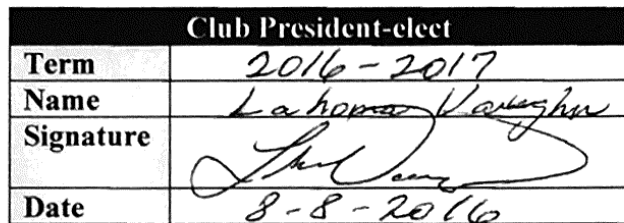 Club President-elect
Term 2016-2017
Name Lahoma Vaughn
Signature
Date 8-8-2016